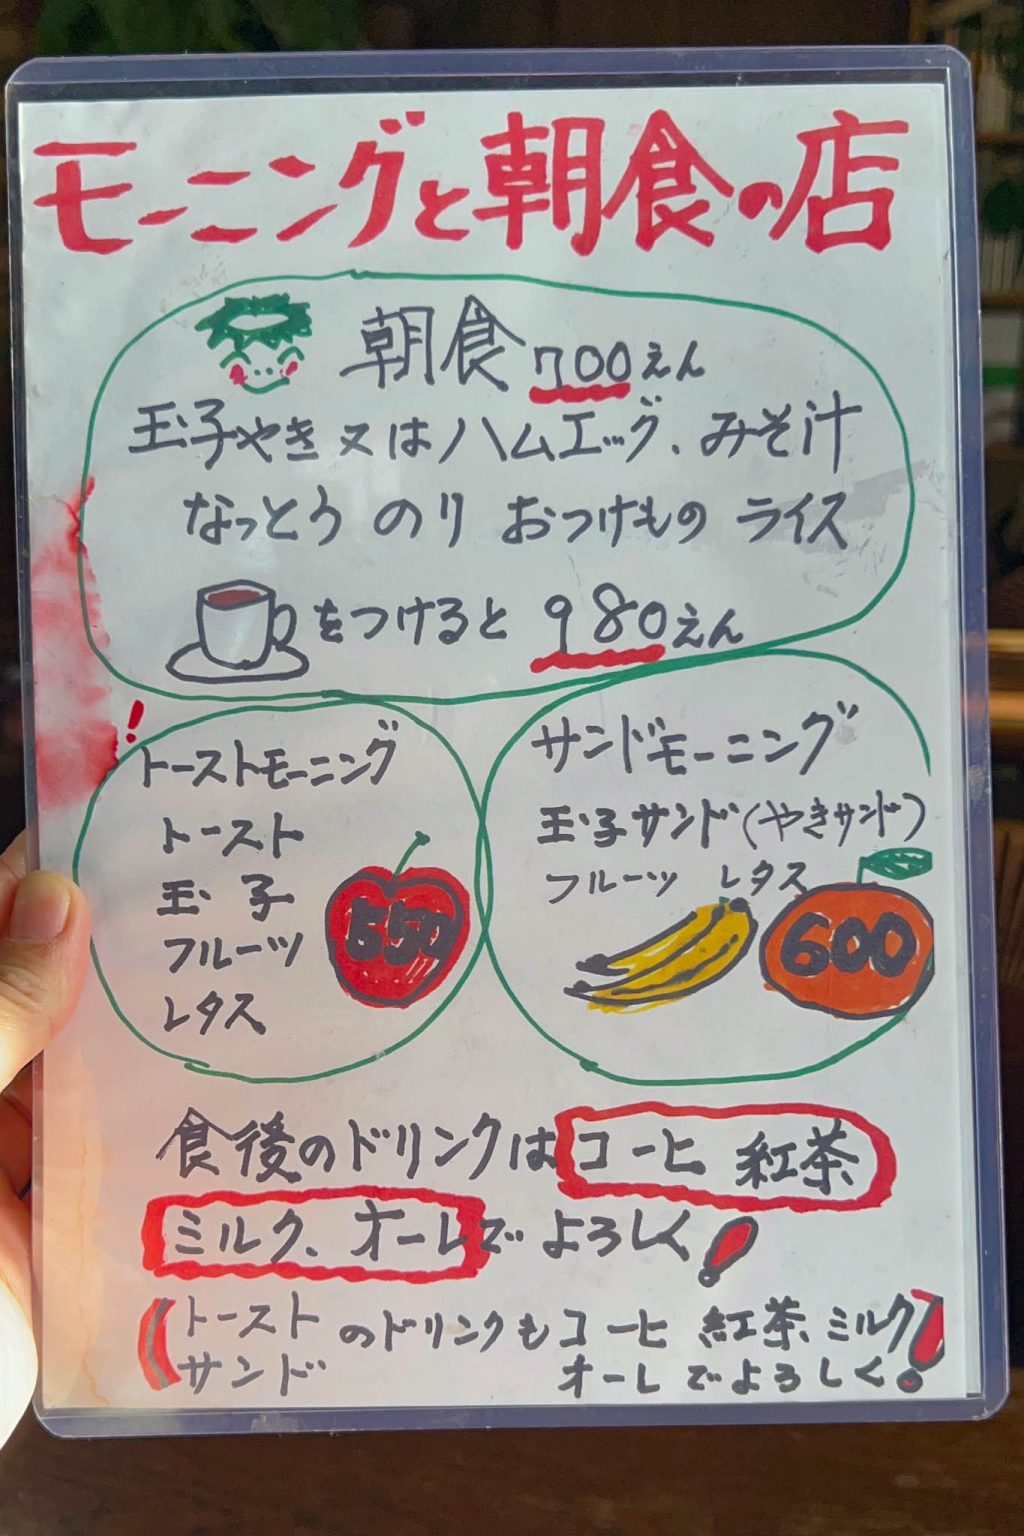 モーニングと朝食の店
朝食 700えん
玉子やき又はハムエッグ、みそ汁
なっとう のり おつけもの ライス
をつけると 980えん
!
トーストモーニング
トースト
玉子
フルーツ
レタス
550
サンドモーニング
玉子サンド(やきサンド)
フルーツ レタス
600
食後のドリンクはコーヒ 紅茶
ミルク、オーレでよろしく!
(トースト
サンド
のドリンクもコーヒ 紅茶、ミルク
オーレでよろしく!